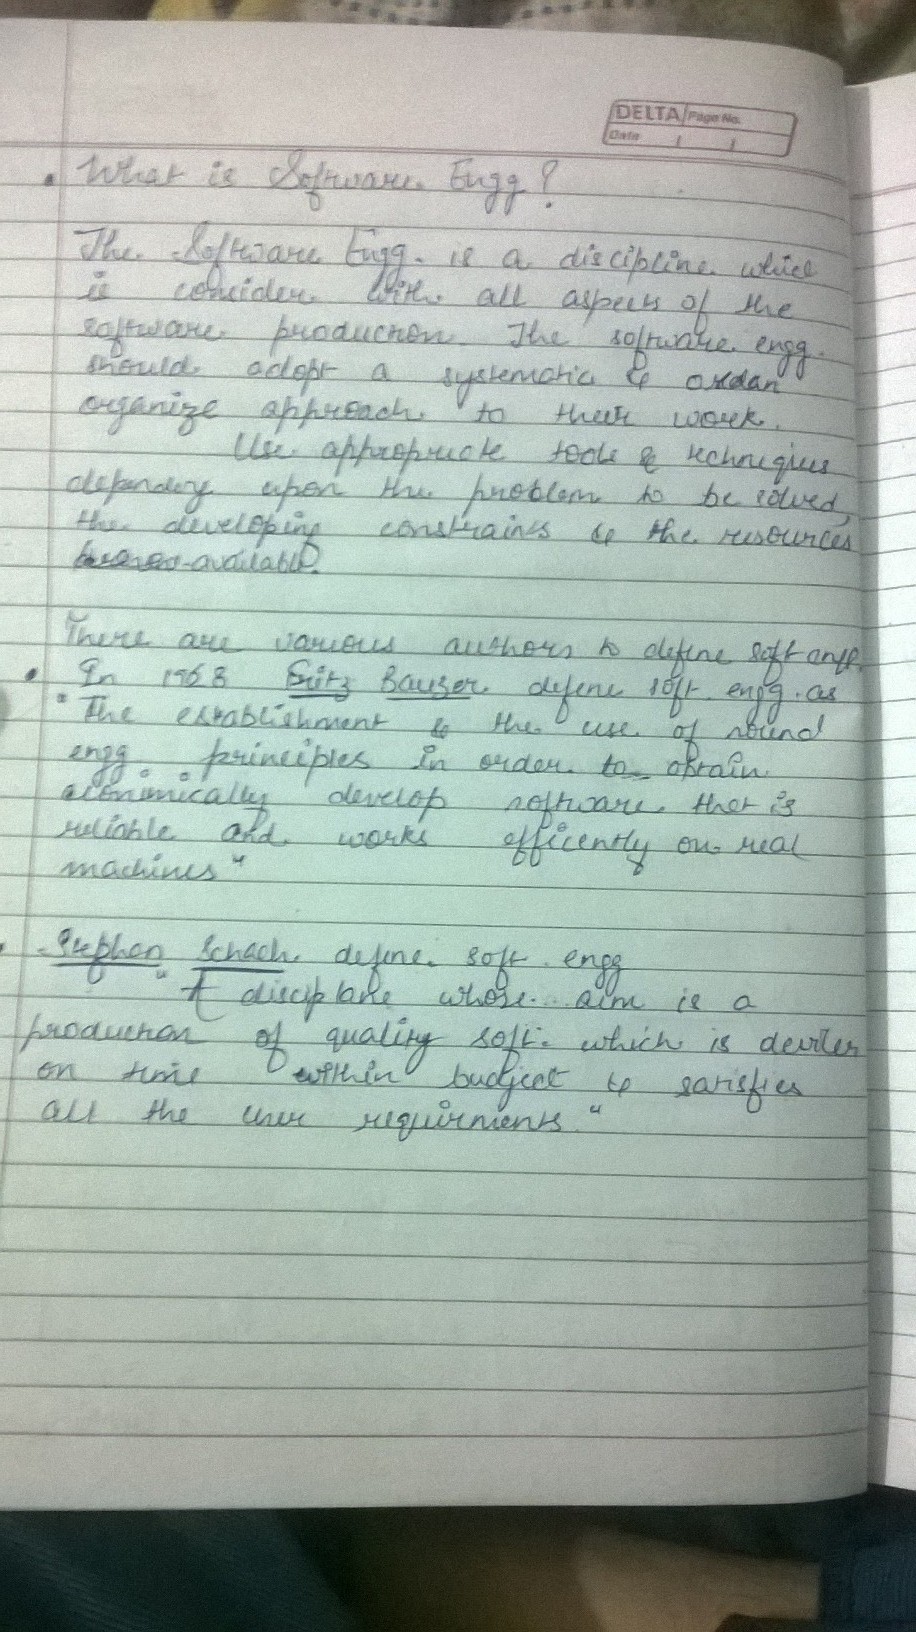 DELTA Page No.
Date / /
• What is Software Engg?
The Software Engg. is a discipline which
is consider with all aspects of the
software production. The software engg.
should adopt a systematic &
organize approach to their work.
Use appropriate tools & techniques
depending upon the problem to be solved,
the developing constraints & the resources
available.
There are various authors to define soft engg.
• In 1968 Fritz Bauser define soft engg. as
"The establishment & the use of sound
engg principles in order to obtain
economically develop software that is
reliable and works efficently on real
machines"
• Stephen Schach define soft. engg
"A discipline whose aim is a
production of quality soft. which is
on time within budject & satisfies
all the user requirments."